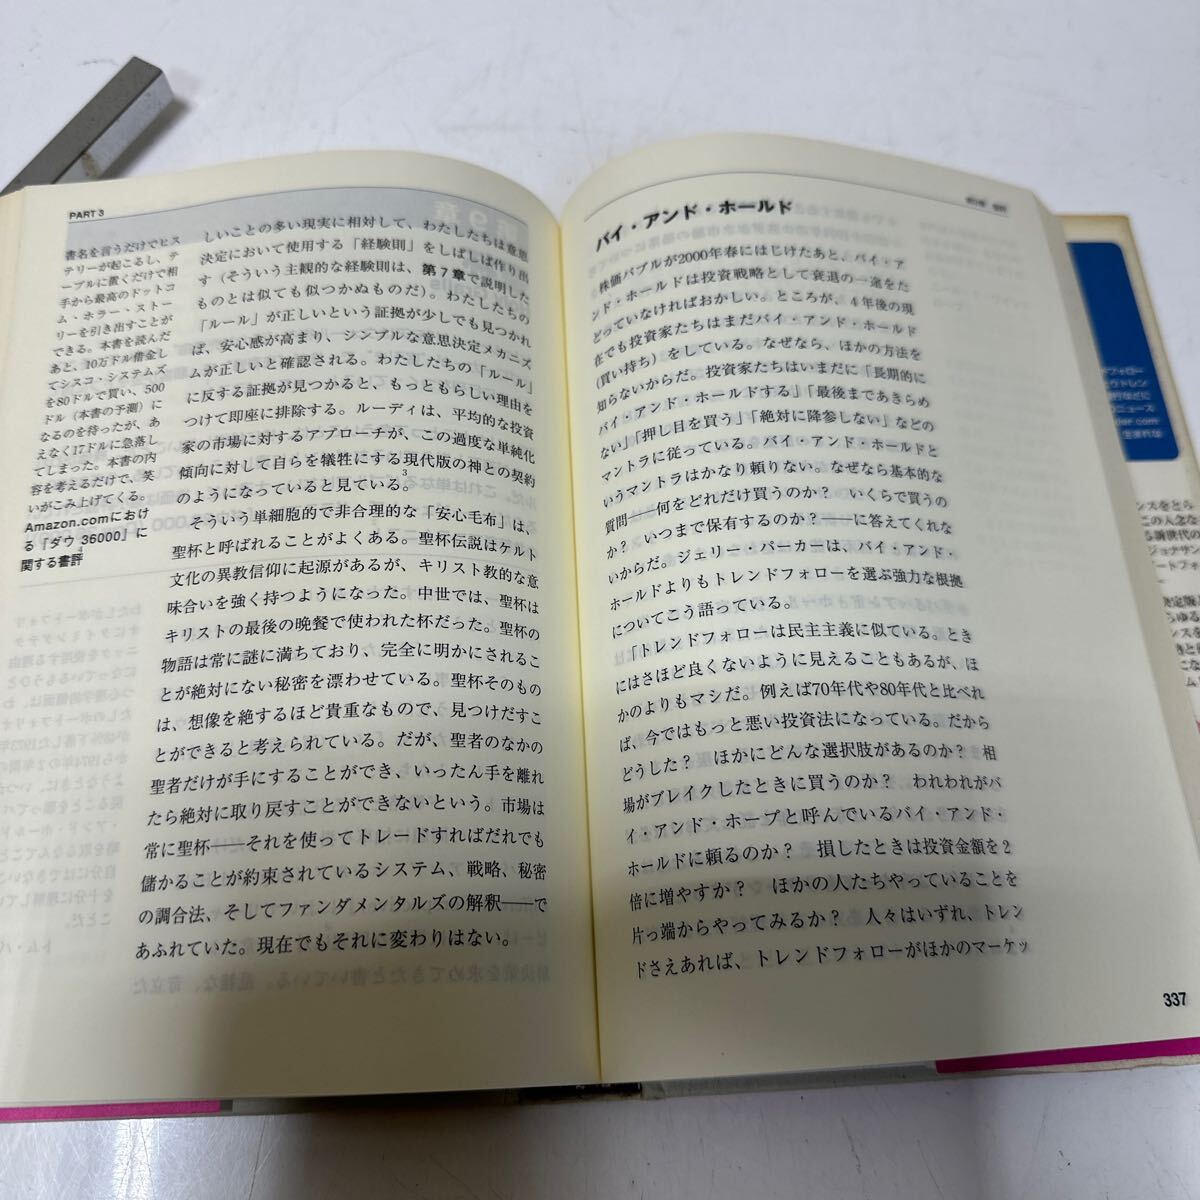 PART 3
書名を言うだけでヒス
テリーが起こるし、テ
ーブルに置くだけで相
手から最高のドットコ
ム・ホラー・ストー
リーを引き出すことが
できる。本書を読んだ
あと、10万ドル借金し
てシスコ・システムズ
を80ドルで買い、500
ドル（本書の予測）に
なるのを待ったが、あ
えなく17ドルに急落し
てしまった。本書の内
容を考えるだけで、笑
いがこみ上げてくる。
Amazon.comにおけ
る『ダウ 36000』に
関する書評4
しいことの多い現実に相対して、わたしたちは意思
決定において使用する「経験則」をしばしば作り出
す（そういう主観的な経験則は、第７章で説明した
ものとは似ても似つかぬものだ）。わたしたちの
「ルール」が正しいという証拠が少しでも見つかれ
ば、安心感が高まり、シンプルな意思決定メカニズ
ムが正しいと確認される。わたしたちの「ルール」
に反する証拠が見つかると、もっともらしい理由を
つけて即座に排除する。ルーディは、平均的な投資
家の市場に対するアプローチが、この過度な単純化
傾向に対して自らを犠牲にする現代版の神との契約
のようになっていると見ている。3
そういう単細胞的で非合理的な「安心毛布」は、
聖杯と呼ばれることがよくある。聖杯伝説はケルト
文化の異教信仰に起源があるが、キリスト教的な意
味合いを強く持つようになった。中世では、聖杯は
キリストの最後の晩餐で使われた杯だった。聖杯の
物語は常に謎に満ちており、完全に明かにされるこ
とが絶対にない秘密を漂わせている。聖杯そのもの
は、想像を絶するほど貴重なもので、見つけだすこ
とができると考えられている。だが、聖者のなかの
聖者だけが手にすることができ、いったん手を離れ
たら絶対に取り戻すことができないという。市場は
常に聖杯――それを使ってトレードすればだれでも
儲かることが約束されているシステム、戦略、秘密
の調合法、そしてファンダメンタルズの解釈――で
あふれていた。現在でもそれに変わりはない。
バイ・アンド・ホールド
株価バブルが2000年春にはじけたあと、バイ・ア
ンド・ホールドは投資戦略として衰退の一途をた
どっていなければおかしい。ところが、４年後の現
在でも投資家たちはまだバイ・アンド・ホールド
（買い持ち）をしている。なぜなら、ほかの方法を
知らないからだ。投資家たちはいまだに「長期的に
バイ・アンド・ホールドする」「最後まであきらめ
ない」「押し目を買う」「絶対に降参しない」などの
マントラに従っている。バイ・アンド・ホールドと
いうマントラはかなり頼りない。なぜなら基本的な
質問――何をどれだけ買うのか？ いくらで買うの
か？ いつまで保有するのか？――に答えてくれな
いからだ。ジェリー・パーカーは、バイ・アンド・
ホールドよりもトレンドフォローを選ぶ強力な根拠
についてこう語っている。
「トレンドフォローは民主主義に似ている。とき
にはさほど良くないように見えることもあるが、ほ
かのよりもマシだ。例えば70年代や80年代と比べれ
ば、今ではもっと悪い投資法になっている。だから
どうした？ ほかにどんな選択肢があるのか？ 相
場がブレイクしたときに買うのか？ われわれがバ
イ・アンド・ホープと呼んでいるバイ・アンド・
ホールドに頼るのか？ 損したときは投資金額を２
倍に増やすか？ ほかの人たちやっていることを
片っ端からやってみるか？ 人々はいずれ、トレン
ドさえあれば、トレンドフォローがほかのマーケッ
337